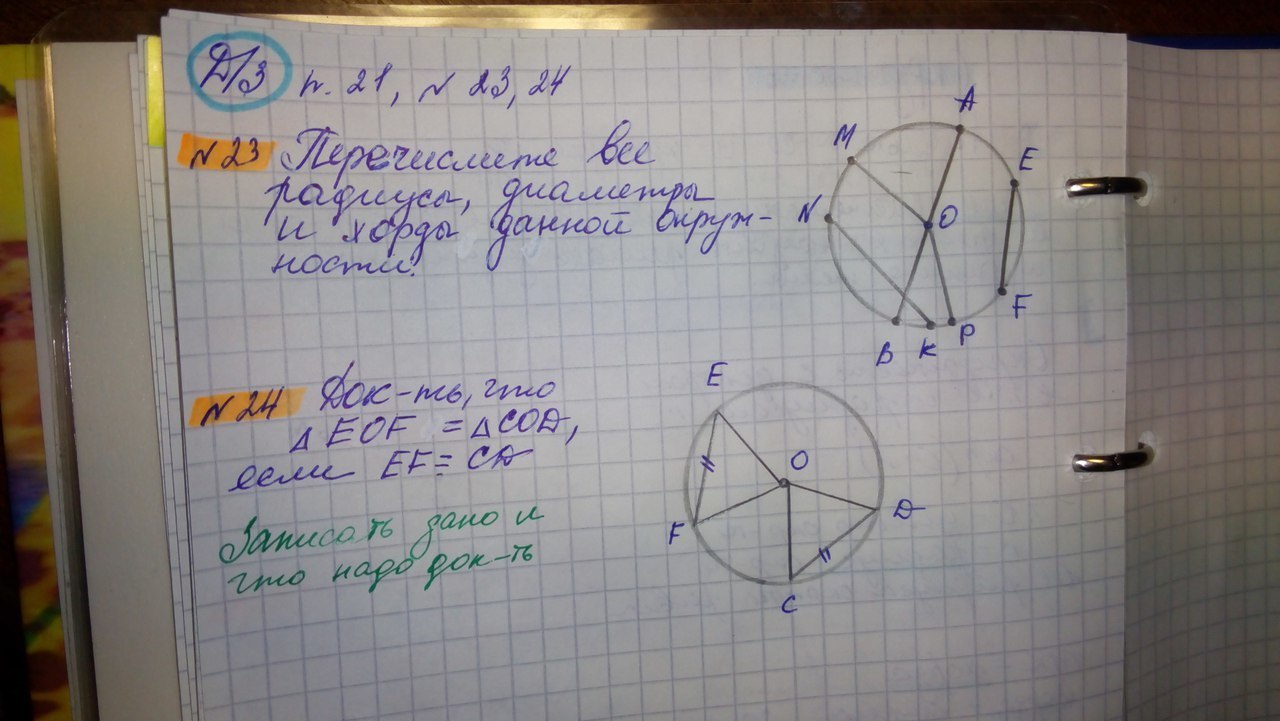 Д/З п. 21, № 23, 24
№ 23 Перечислите все
радиусы, диаметры
и хорды данной окруж-
ности.
A
M
E
N
O
F
B K P
№ 24 Док-ть, что
△ EOF = △ COD,
если EF = CD
Записать дано и
что надо док-ть
E
O
D
F
C